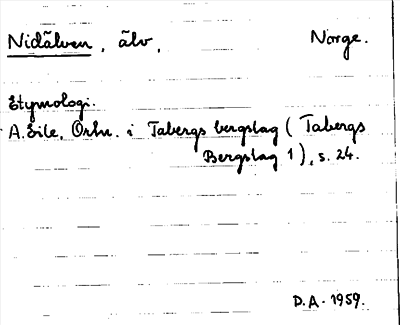 Nidälven, älv, Norge.
Etymologi.
A. Eile, Ortn. i Tabergs bergslag (Tabergs
Bergslag 1), s. 24.
D.A. 1959.